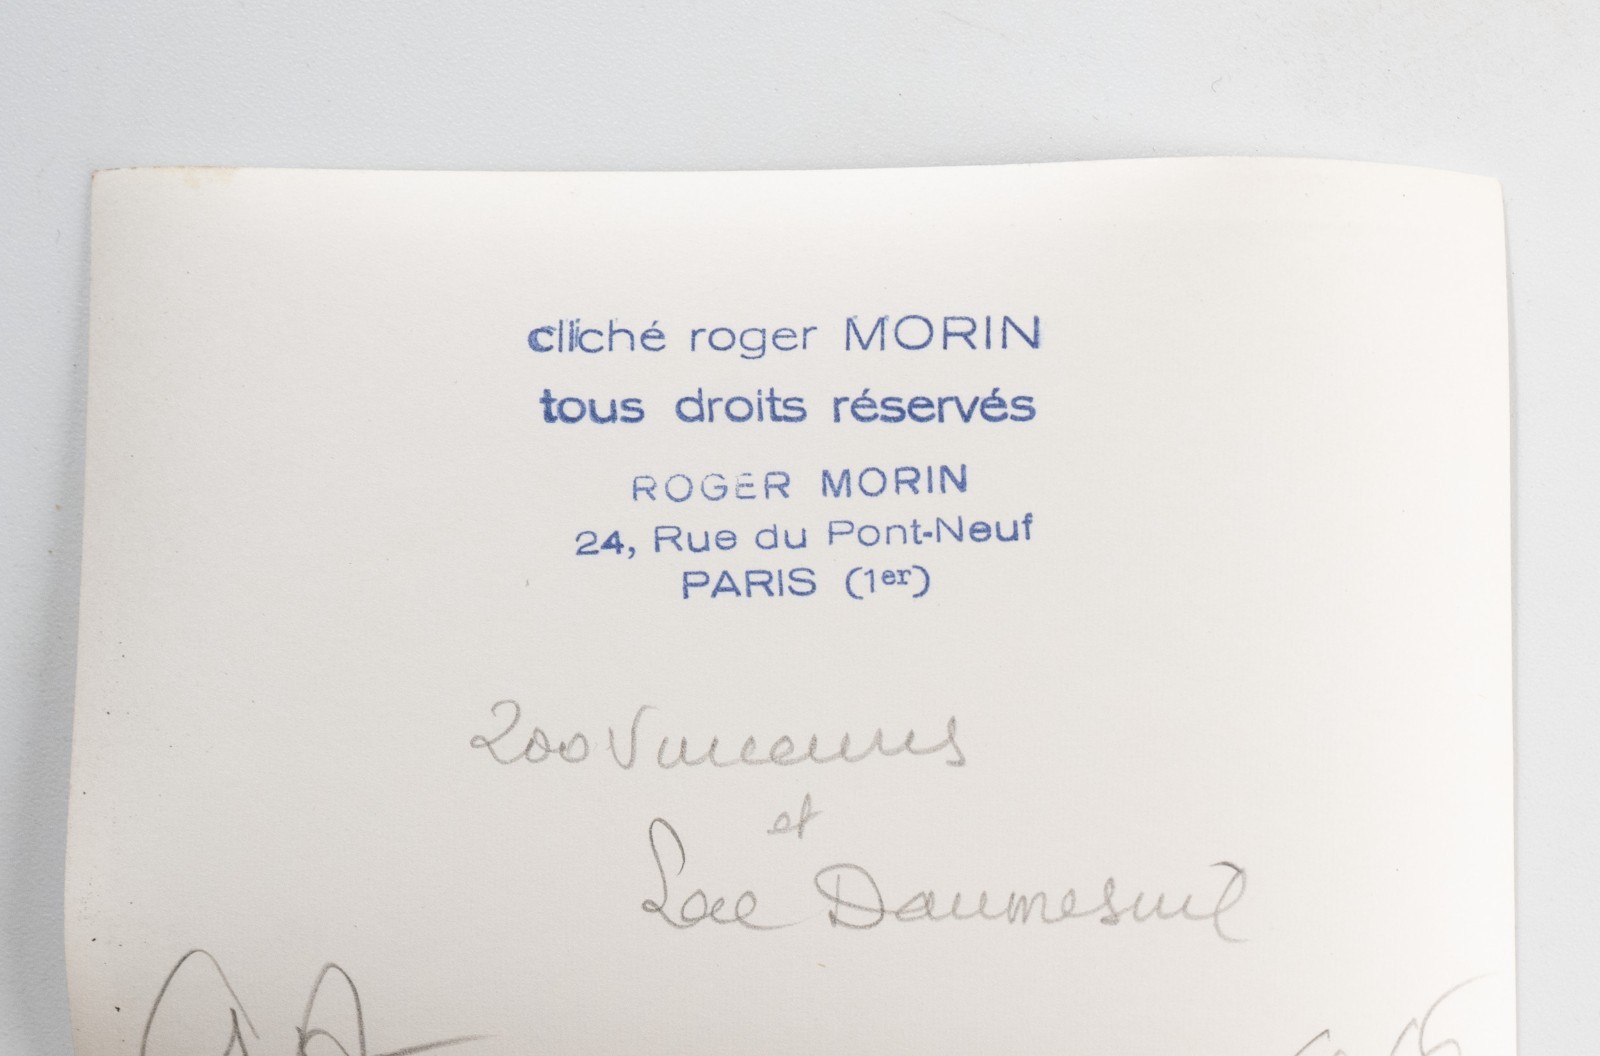 cliché roger MORIN
tous droits réservés
ROGER MORIN
24, Rue du Pont-Neuf
PARIS (1er)
Zoo Vincennes
et
Lac Daumesnil